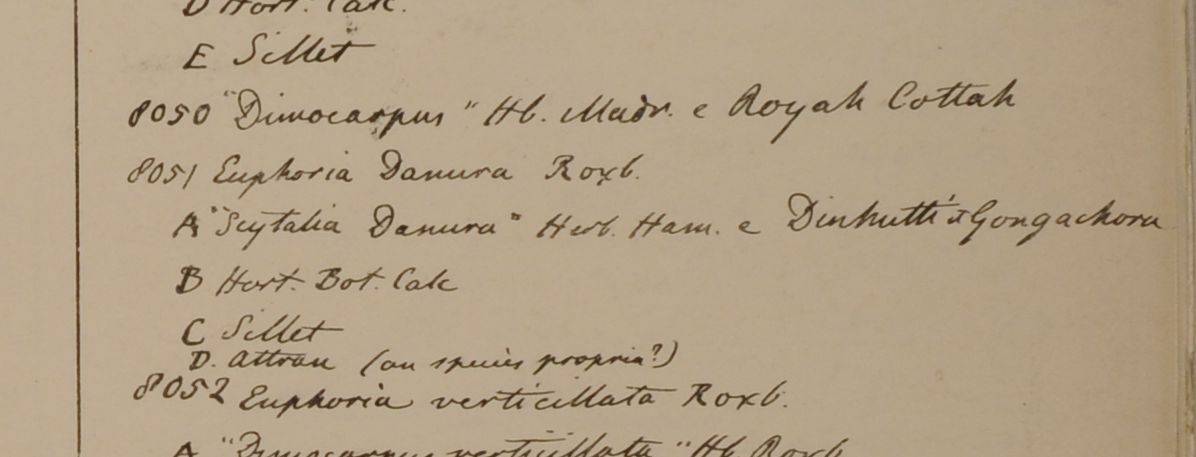 D Hort. Calc.
E Sillet
8050 "Dimocarpus" Hb. Madr. e Royah Cottah
8051 Euphoria Danura Roxb.
A "Scytalia Danura" Herb. Ham. e Dinhutti & Gongachora
B Hort. Bot. Calc
C Sillet
D. Attran (an species propria?)
8052 Euphoria verticillata Roxb.
A "Dimocarpus verticillata" Hb. Roxb.